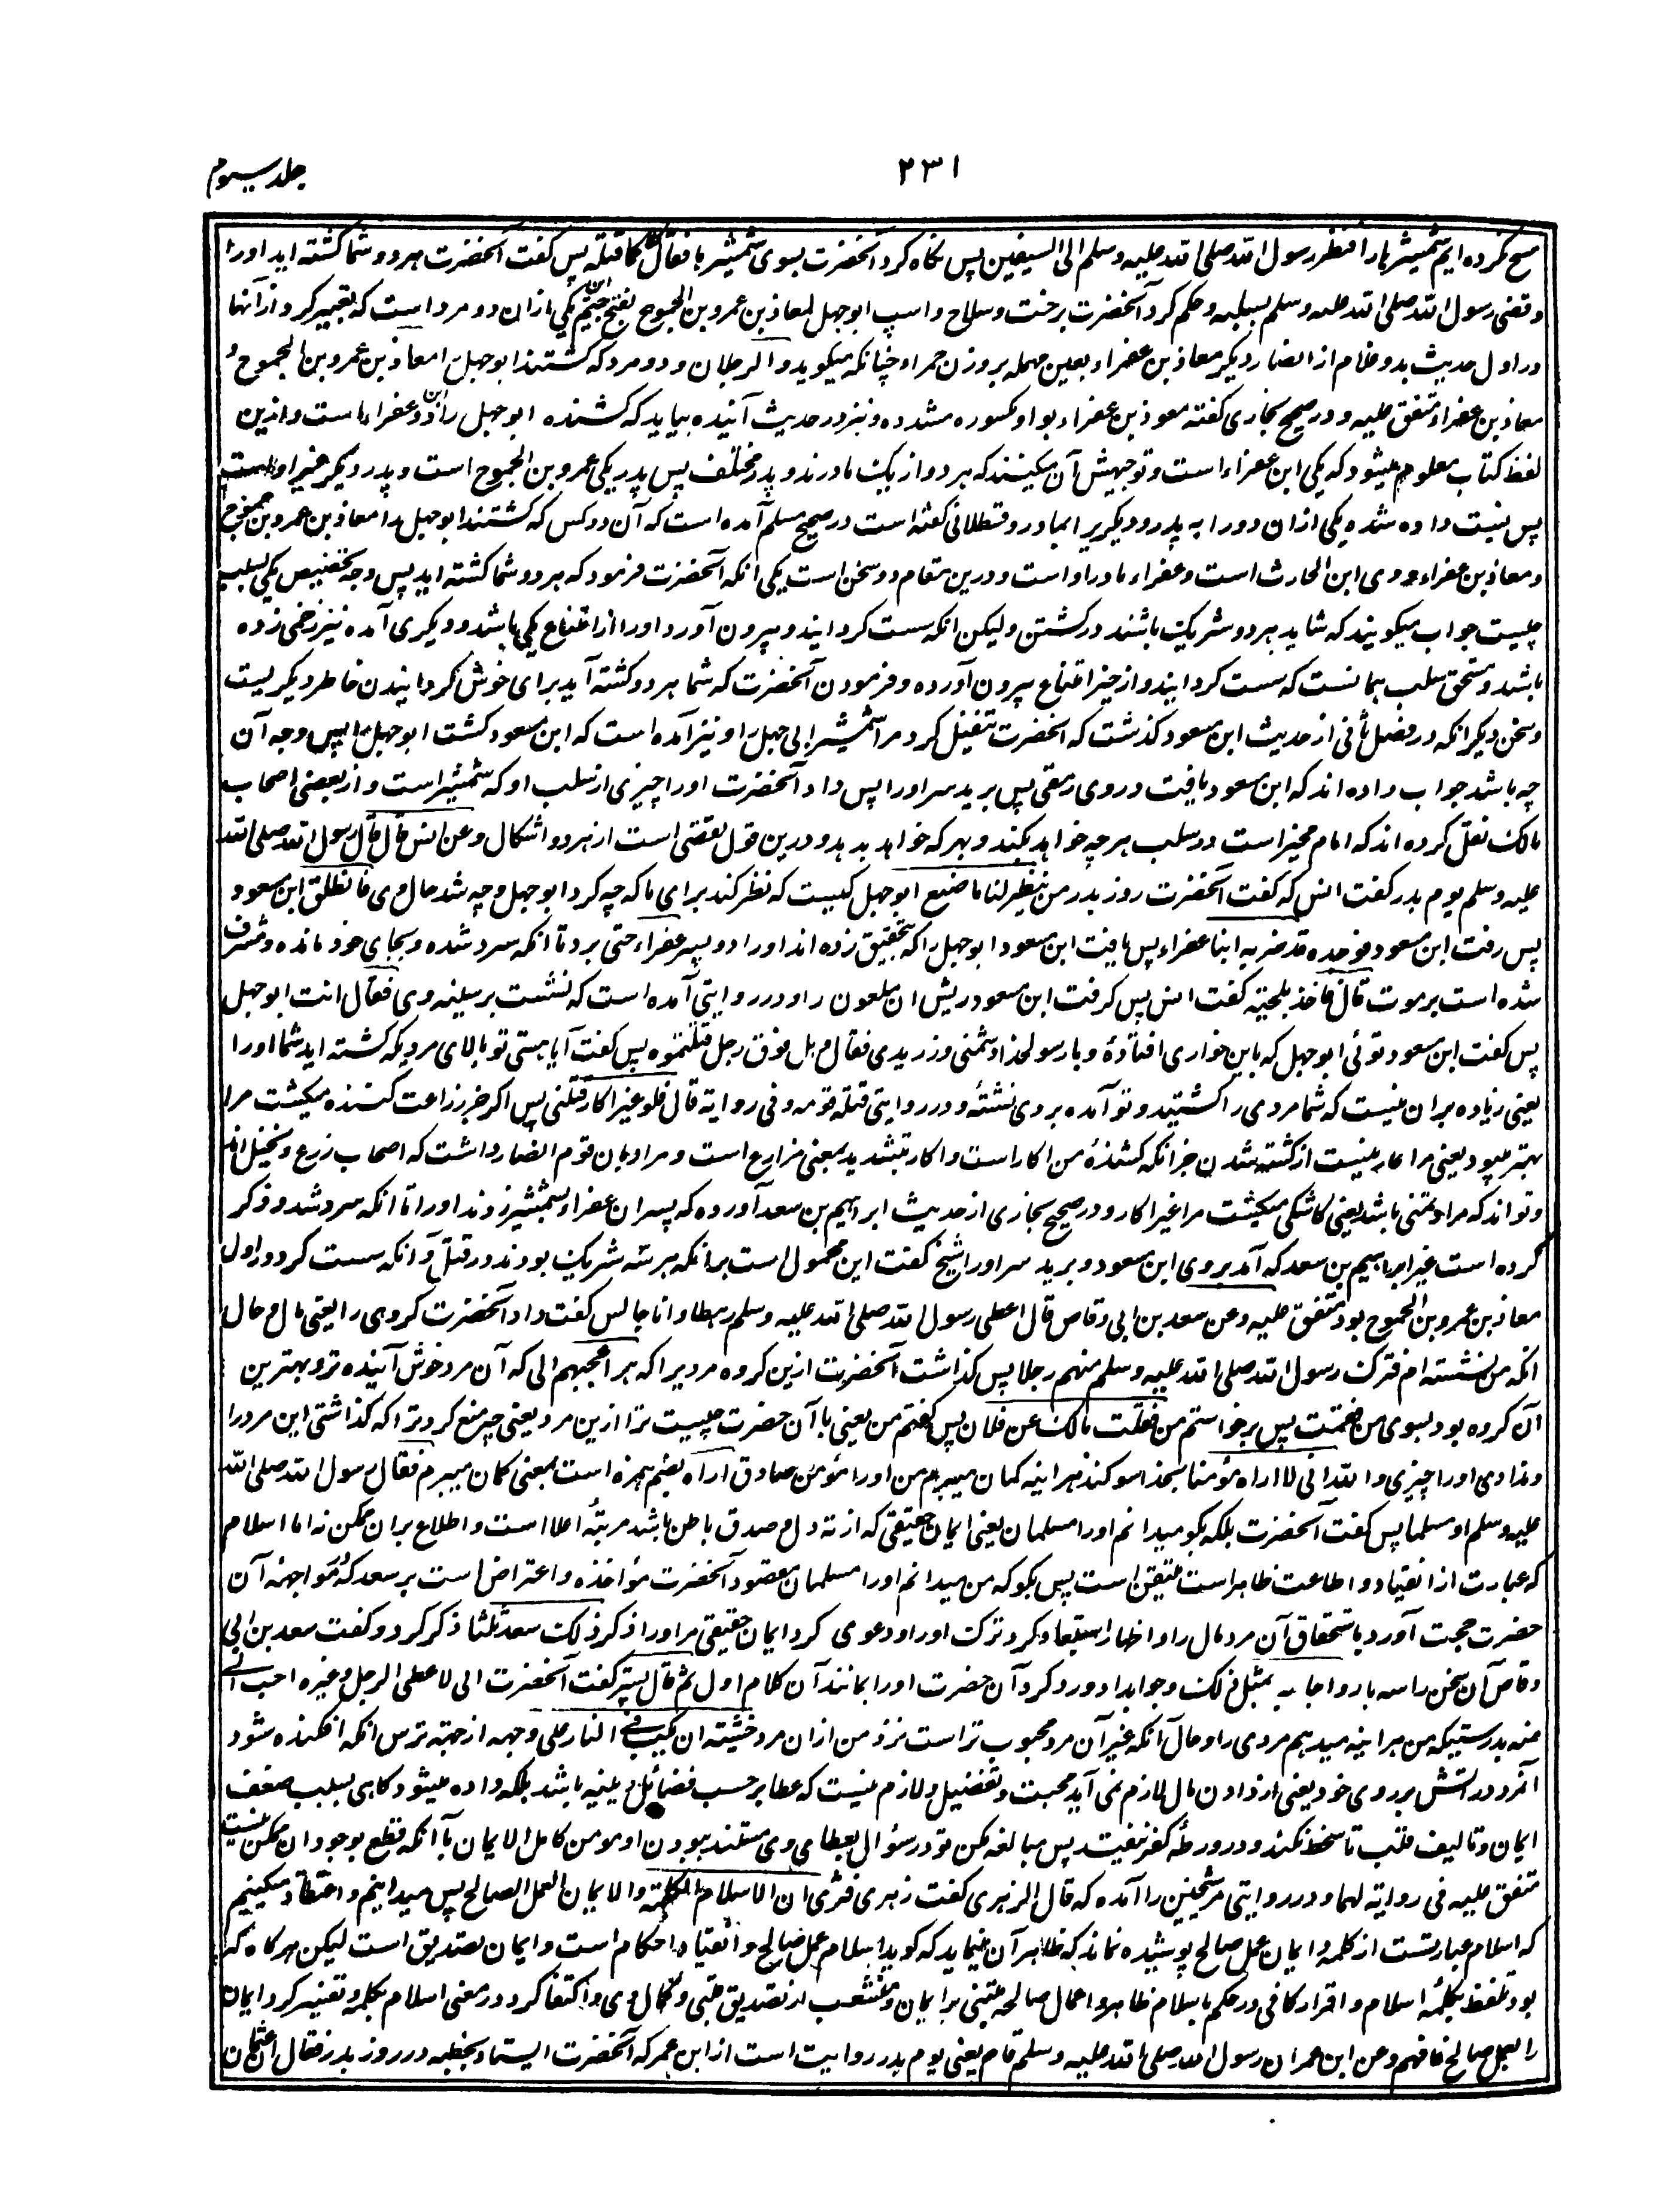 جلد سیوم
۲۳۱
مسح نکرده ایم شمشیر ها را فنظر رسول الله صلی الله علیه وسلم الی السیفین پس نگاه کرد آنحضرت بسوی شمشیر ها فقال کلاکما قتله پس گفت آنحضرت هر دو شما کشته اید او را
وقضی رسول الله صلی الله علیه وسلم بسلبه وحکم کرد آنحضرت برخت وسلاح واسپ ابوجهل لمعاذ بن عمرو بن الجموح بفتح جیم یکی ازان دو مرد است که تعبیر کرد از آنها
در اول حدیث بدو غلام از انصار دیگر معاذ بن عفراء بعین مهمله بر وزن حمراء چنانکه میگوید والرجلان و دو مرد که کشتند ابوجهل را معاذ بن عمرو بن الجموح و
معاذ بن عفراء متفق علیه و در صحیح بخاری گفته معوذ بن عفراء بواو مکسوره مشدده ونیز در حدیث آینده بیاید که کشنده ابوجهل را دو ابن عفراء است و ازین
لفظ کتاب معلوم میشود که یکی ابن عفراء است وتوجیهش آن میکنند که هر دو از یک مادرند و پدر مختلف پس پدر یکی عمرو بن الجموح است و پدر دیگر غیر او است
پس نسبت داده شده یکی ازان دو را به پدر و دیگری را بمادر و قسطلانی گفته است در صحیح مسلم آمده است که آن دو کس که کشتند ابوجهل را معاذ بن عمرو بن جموح
ومعاذ بن عفراء ووی ابن الحارث است و عفراء مادر او است و درین مقام دو سخن است یکی آنکه آنحضرت فرمود که هر دو شما کشته اید پس وجه تخصیص یکی بسلب
چیست جواب میگویند که شاید هر دو شریک باشند در کشتن ولیکن آنکه سست گردانید و بیرون آورد او را از امتناع یکی باشد و دیگری آمده نیز زخمی زده
باشد و مستحق سلب همانست که سست گردانید و از حیز امتناع بیرون آورده و فرمودن آنحضرت که شما هر دو کشته آید برای خوش گردانیدن خاطر دیگریست
وسخن دیگر آنکه در فصل ثانی از حدیث ابن مسعود گذشت که آنحضرت تنفیل کرد مر او شمشیر ابی جهل را و نیز آمده است که ابن مسعود کشت ابوجهل را پس وجه آن
چه باشد جواب داده اند که ابن مسعود یافت در وی رمقی پس برید سر او را پس داد آنحضرت او را چیزی از سلب او که شمشیر است و از بعضی اصحاب
مالک نقل کرده اند که امام مخیر است در سلب هر چه خواهد بکند و بهر که خواهد بدهد و درین قول تقصی است از هر دو اشکال وعن انس قال قال رسول الله صلی الله
علیه وسلم یوم بدر گفت انس که گفت آنحضرت روز بدر من ینظر لنا ما صنع ابوجهل کیست که نظر کند برای ما که چه کرد ابوجهل و چه شد حال وی فانطلق ابن مسعود
پس رفت ابن مسعود فوجده قد ضربه ابنا عفراء پس یافت ابن مسعود ابوجهل را که بتحقیق زده اند او را دو پسر عفراء حتی برد تا آنکه سرد شده و بجای خود مانده و مشرف
شده است بر موت قال فاخذ بلحیته گفت انس پس گرفت ابن مسعود ریش آن ملعون را و در روایتی آمده است که نشست بر سینه وی فقال انت ابوجهل
پس گفت ابن مسعود توئی ابوجهل که باین خواری افتادهٔ و با رسولخدا دشمنی ورزیدی فقال وهل فوق رجل قتلتموه پس گفت آیا هستی تو بالای مردیکه کشته اید شما او را
یعنی زیاده بران نیست که شما مردی را کشتید و تو آمده بر وی نشستهٔ و در روایتی قتله قومه وفی روایة قال فلو غیر اکار قتلنی پس اگر غیر زراعت کننده میکشت مرا
بهتر میبود یعنی مرا عار نیست از کشته شدن جز آنکه کشندهٔ من اکار است و اکار بتشدید بمعنی مزارع است و مراد بآن قوم انصار داشت که اصحاب زرع و نخیل اند
وتواند که مراد تمنی باشد یعنی کاشکی میکشت مرا غیر اکار و در صحیح بخاری از حدیث ابراهیم بن سعد آورده که پسران عفراء بشمشیر زدند او را تا آنکه سرد شد و ذکر
کرده است غیر ابراهیم بن سعد که آمد بر وی ابن مسعود و برید سر او را شیخ گفت این محمول است بر آنکه هر سه شریک بودند در قتل و آنکه سست کرد در اول
معاذ بن عمرو بن الجموح بود متفق علیه وعن سعد بن ابی وقاص قال اعطی رسول الله صلی الله علیه وسلم رهطا وانا جالس گفت داد آنحضرت گروهی را یعنی مال و حال
آنکه من نشسته ام فترک رسول الله صلی الله علیه وسلم منهم رجلا پس گذاشت آنحضرت ازین گروه مردی را که هو اعجبهم الی که آن مرد خوش آینده تر و بهترین
آن گروه بود بسوی من فقمت پس برخواستم من فقلت مالک عن فلان پس گفتم من یعنی با آن حضرت چیست ترا ازین مرد یعنی چه منع کرد ترا که گذاشتی این مرد را
وندادی او را چیزی والله انی لا اراه مؤمنا بخدا سوگند هر اینه گمان میبرم من او را مؤمن صادق اراه بضم همزه است بمعنی گمان میبرم فقال رسول الله صلی الله
علیه وسلم او مسلما پس گفت آنحضرت بلکه بگو میدانم او را مسلمان یعنی ایمان حقیقی که از ته دل و صدق باطن باشد مرتبهٔ اعلا است و اطلاع بران ممکن نه اما اسلام
که عبارت از انقیاد و اطاعت ظاهر است متیقن است پس بگو که من میدانم او را مسلمان مقصود آنحضرت مؤاخذه و اعتراض است بر سعد که مواجهه آن
حضرت حجت آورد باستحقاق آن مرد مال را و اظهار استبعاد کرد ترک او را و دعوی کرد ایمان حقیقی مر او را ذکر ذلک سعد ثلثا ذکر کرد و گفت سعد بن ابی
وقاص آن سخن را سه بار واجابه بمثل ذلک وجواب داد و رد کرد آن حضرت او را بمانند آن کلام اول ثم قال پستر گفت آنحضرت انی لاعطی الرجل وغیره احب الی
منه بدرستیکه من هر اینه میدهم مردی را و حال آنکه غیر آن مرد محبوب تر است نزد من ازان مرد خشیته ان یکب فی النار علی وجهه از جهته ترس آنکه افکنده شود
آنمرد در آتش بر روی خود یعنی از دادن مال لازم نمی آید محبت و تفضیل و لازم نیست که عطا بر حسب فضائل دینیه باشد بلکه داده میشود گاهی بسبب ضعف
ایمان وتالیف قلب تا سخط نکند و در ورطهٔ کفر نیفتد پس مبالغه مکن تو در سؤال بعطای وی مستند ببودن او مومن کامل الایمان با آنکه قطع بوجود آن ممکن نیست
متفق علیه فی روایة لهما و در روایتی مر شیخین را آمده که قال الزهری گفت زهری فنری ان الاسلام الکلمة والایمان العمل الصالح پس میدانیم و اعتقاد میکنیم
که اسلام عبارتست از کلمه و ایمان عمل صالح پوشیده نماند که ظاهر آن مینماید که گوید اسلام عمل صالح و انقیاد احکام است و ایمان تصدیق است لیکن هر گاه که
بود تلفظ بکلمهٔ اسلام و اقرار کافی در حکم باسلام ظاهر و اعمال صالحه مبتنی بر ایمان و منشعب از تصدیق قلبی و کمال وی واکتفا کرد در معنی اسلام بکلمه و تفسیر کرد ایمان
را بعمل صالح فافهم وعن ابن عمر ان رسول الله صلی الله علیه وسلم قام یعنی یوم بدر روایت است از ابن عمر که آنحضرت ایستاد بخطبه در روز بدر فقال ان عثمان